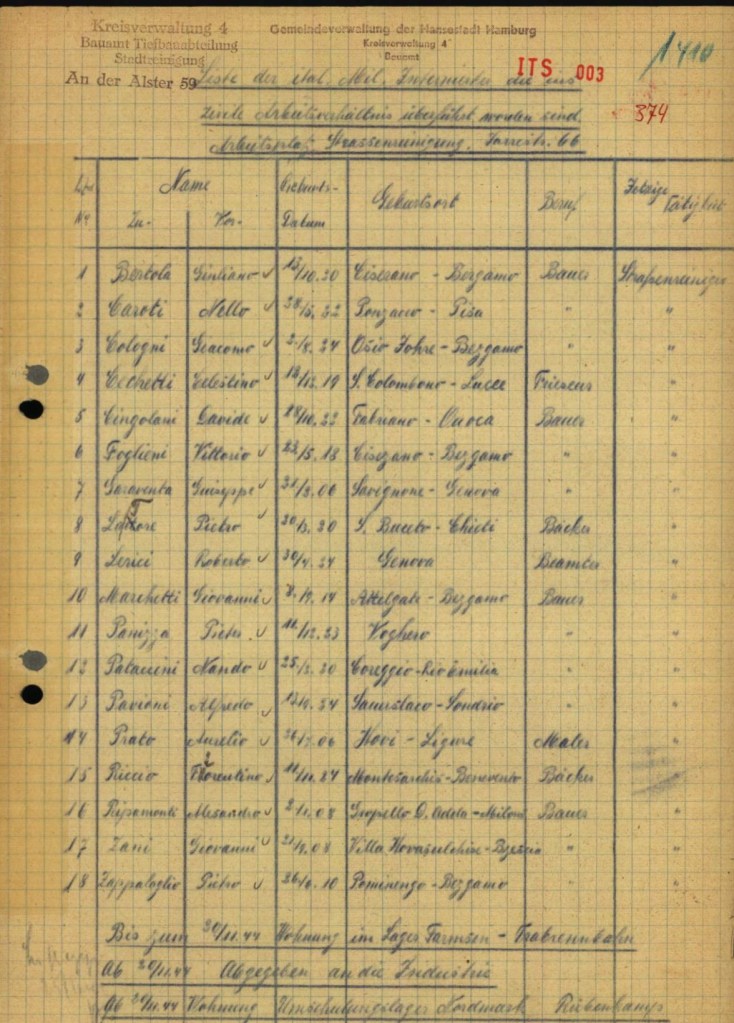 Kreisverwaltung 4
Bauamt Tiefbauabteilung
Stadtreinigung
An der Alster 59
Gemeindeverwaltung der Hansestadt Hamburg
Kreisverwaltung 4
Bauamt
ITS 003
1410
374
Liste der ital. Mil. Internierten die ins
zivile Arbeitsverhältnis überführt worden sind.
Arbeitsplatz Strassenreinigung, Jarrestr. 66
Lfd Nr Name Zu- Vor- Geburts-Datum Geburtsort Beruf Jetzige Tätigkeit
1 Bertola Giuliano 13/10.20 Ciserano - Bergamo Bauer Straßenreiniger
2 Caroti Nello 28/5.22 Ponzacco - Pisa " "
3 Cologni Giacomo /8.24 Osio - Bezgamo " "
4 Cechetti Celestino 13/12.19 S. Colombono - Lucce Friseur "
5 Cingolani Davide 18/10.22 Fabriano - Bauer "
6 Foglieni Vittorio 23/5.13 Cisezano - Bezgamo " "
7 Garaventa Guiseppe 31/3.06 Savignone - Genova " "
8 Pietro 20/3.20 S. Buceto - Chieti Bäcker "
9 Lerici Roberto 30/4.24 Genova Beamter "
10 Marchetti Giovanni .14 - Bezgamo Bauer "
11 Panizza Pieter 11/12.23 Voghero " "
12 Nando 25/3.20 Coreggio - " "
13 Paviani Alfredo .24 - Sondrio " "
14 Prato Aurelio .06 Novi - Ligure Maler "
15 Riccio Fiorentino 11/10. - Bäcker "
16 Ripamonti Alesandro 2/11.08 D. Adda - Bauer "
17 Zani Giovanni .08 Villa " "
18 Zappaloglio Pietro .10 Pominengo - Bezgamo " "
Bis zum 30/11.44 Wohnung im Lager Farmsen - Trabrennbahn
Ab 30/11.44 Abgegeben an die Industrie
Ab 30/11.44 Wohnung Umschulungslager Nordmark Rübenkamp